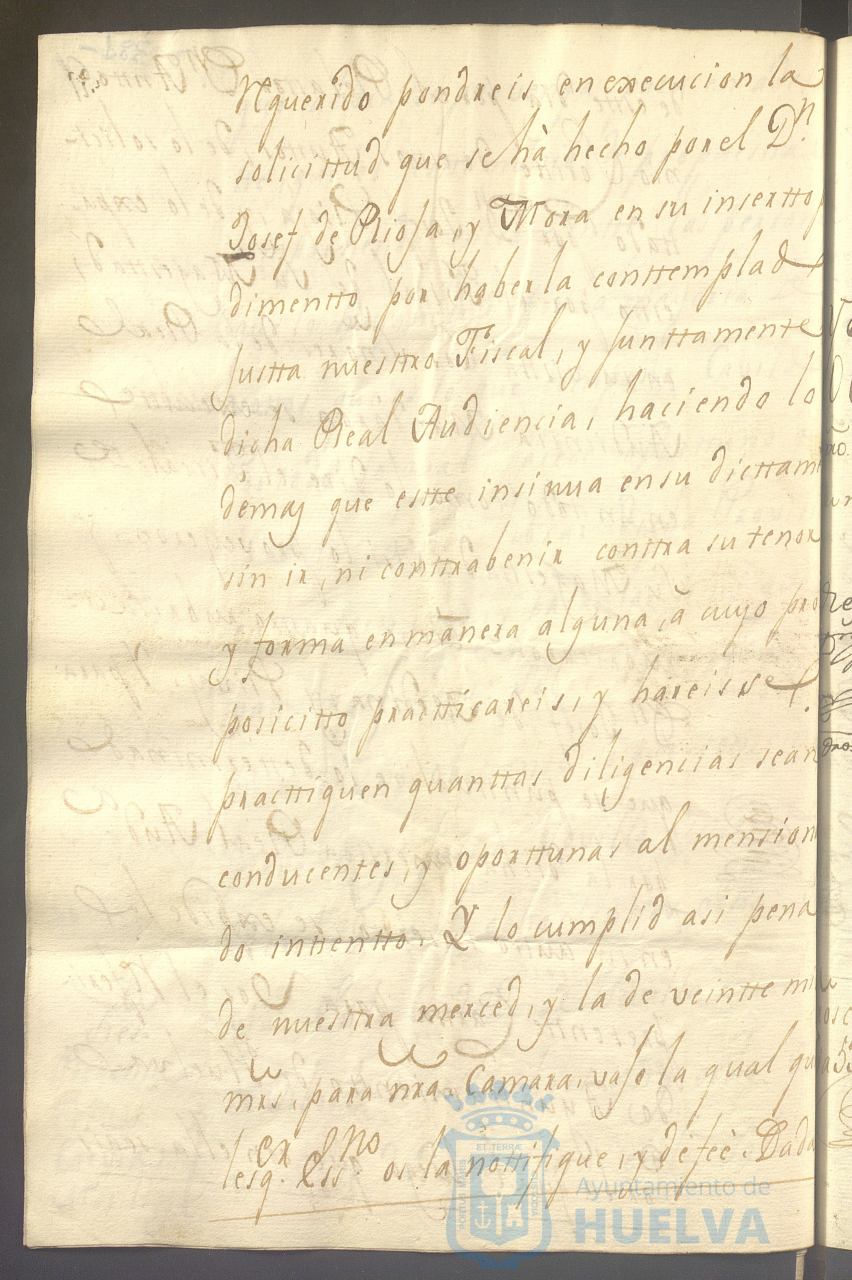 Rquerido pondreis en execucion la
solicittud que se hà hecho por el Dn.
Josef de Riosa, y Mora en su insertto
dimentto por haberla conttemplad
justta nuesttro Fiscal, y junttamente
dicha Real Audiencia, haciendo lo
demas que estte insinua en su dicttam
sin ir, ni conttrabenir conttra su tenor
y forma en manera alguna, à cuyo pro
posicitto practticareis, y hareis se
practtiquen quanttas diligencias sean
conducentes, y oporttunas al mension
do intentto. Y lo cumplid asi pena
de nuesttra merced, y la de veintte mil
mrs. para nra. Camara, vajo la qual qu
lesqr. Essno. os la nottifique, y dé feè. Dada
EL TERRÆ
Ayuntamiento de
HUELVA